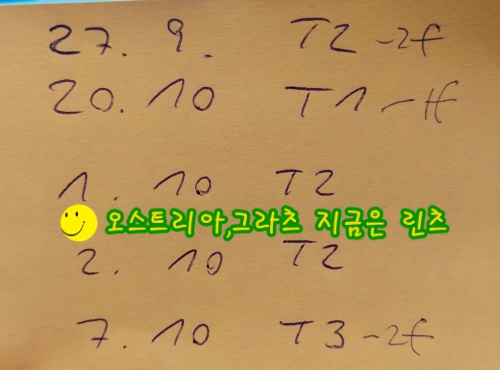 27. 9. T2 -2f
20. 10 T1 -1f
1. 10 T2
오스트리아,그라츠 지금은 린츠
2. 10 T2
7. 10 T3 -2f